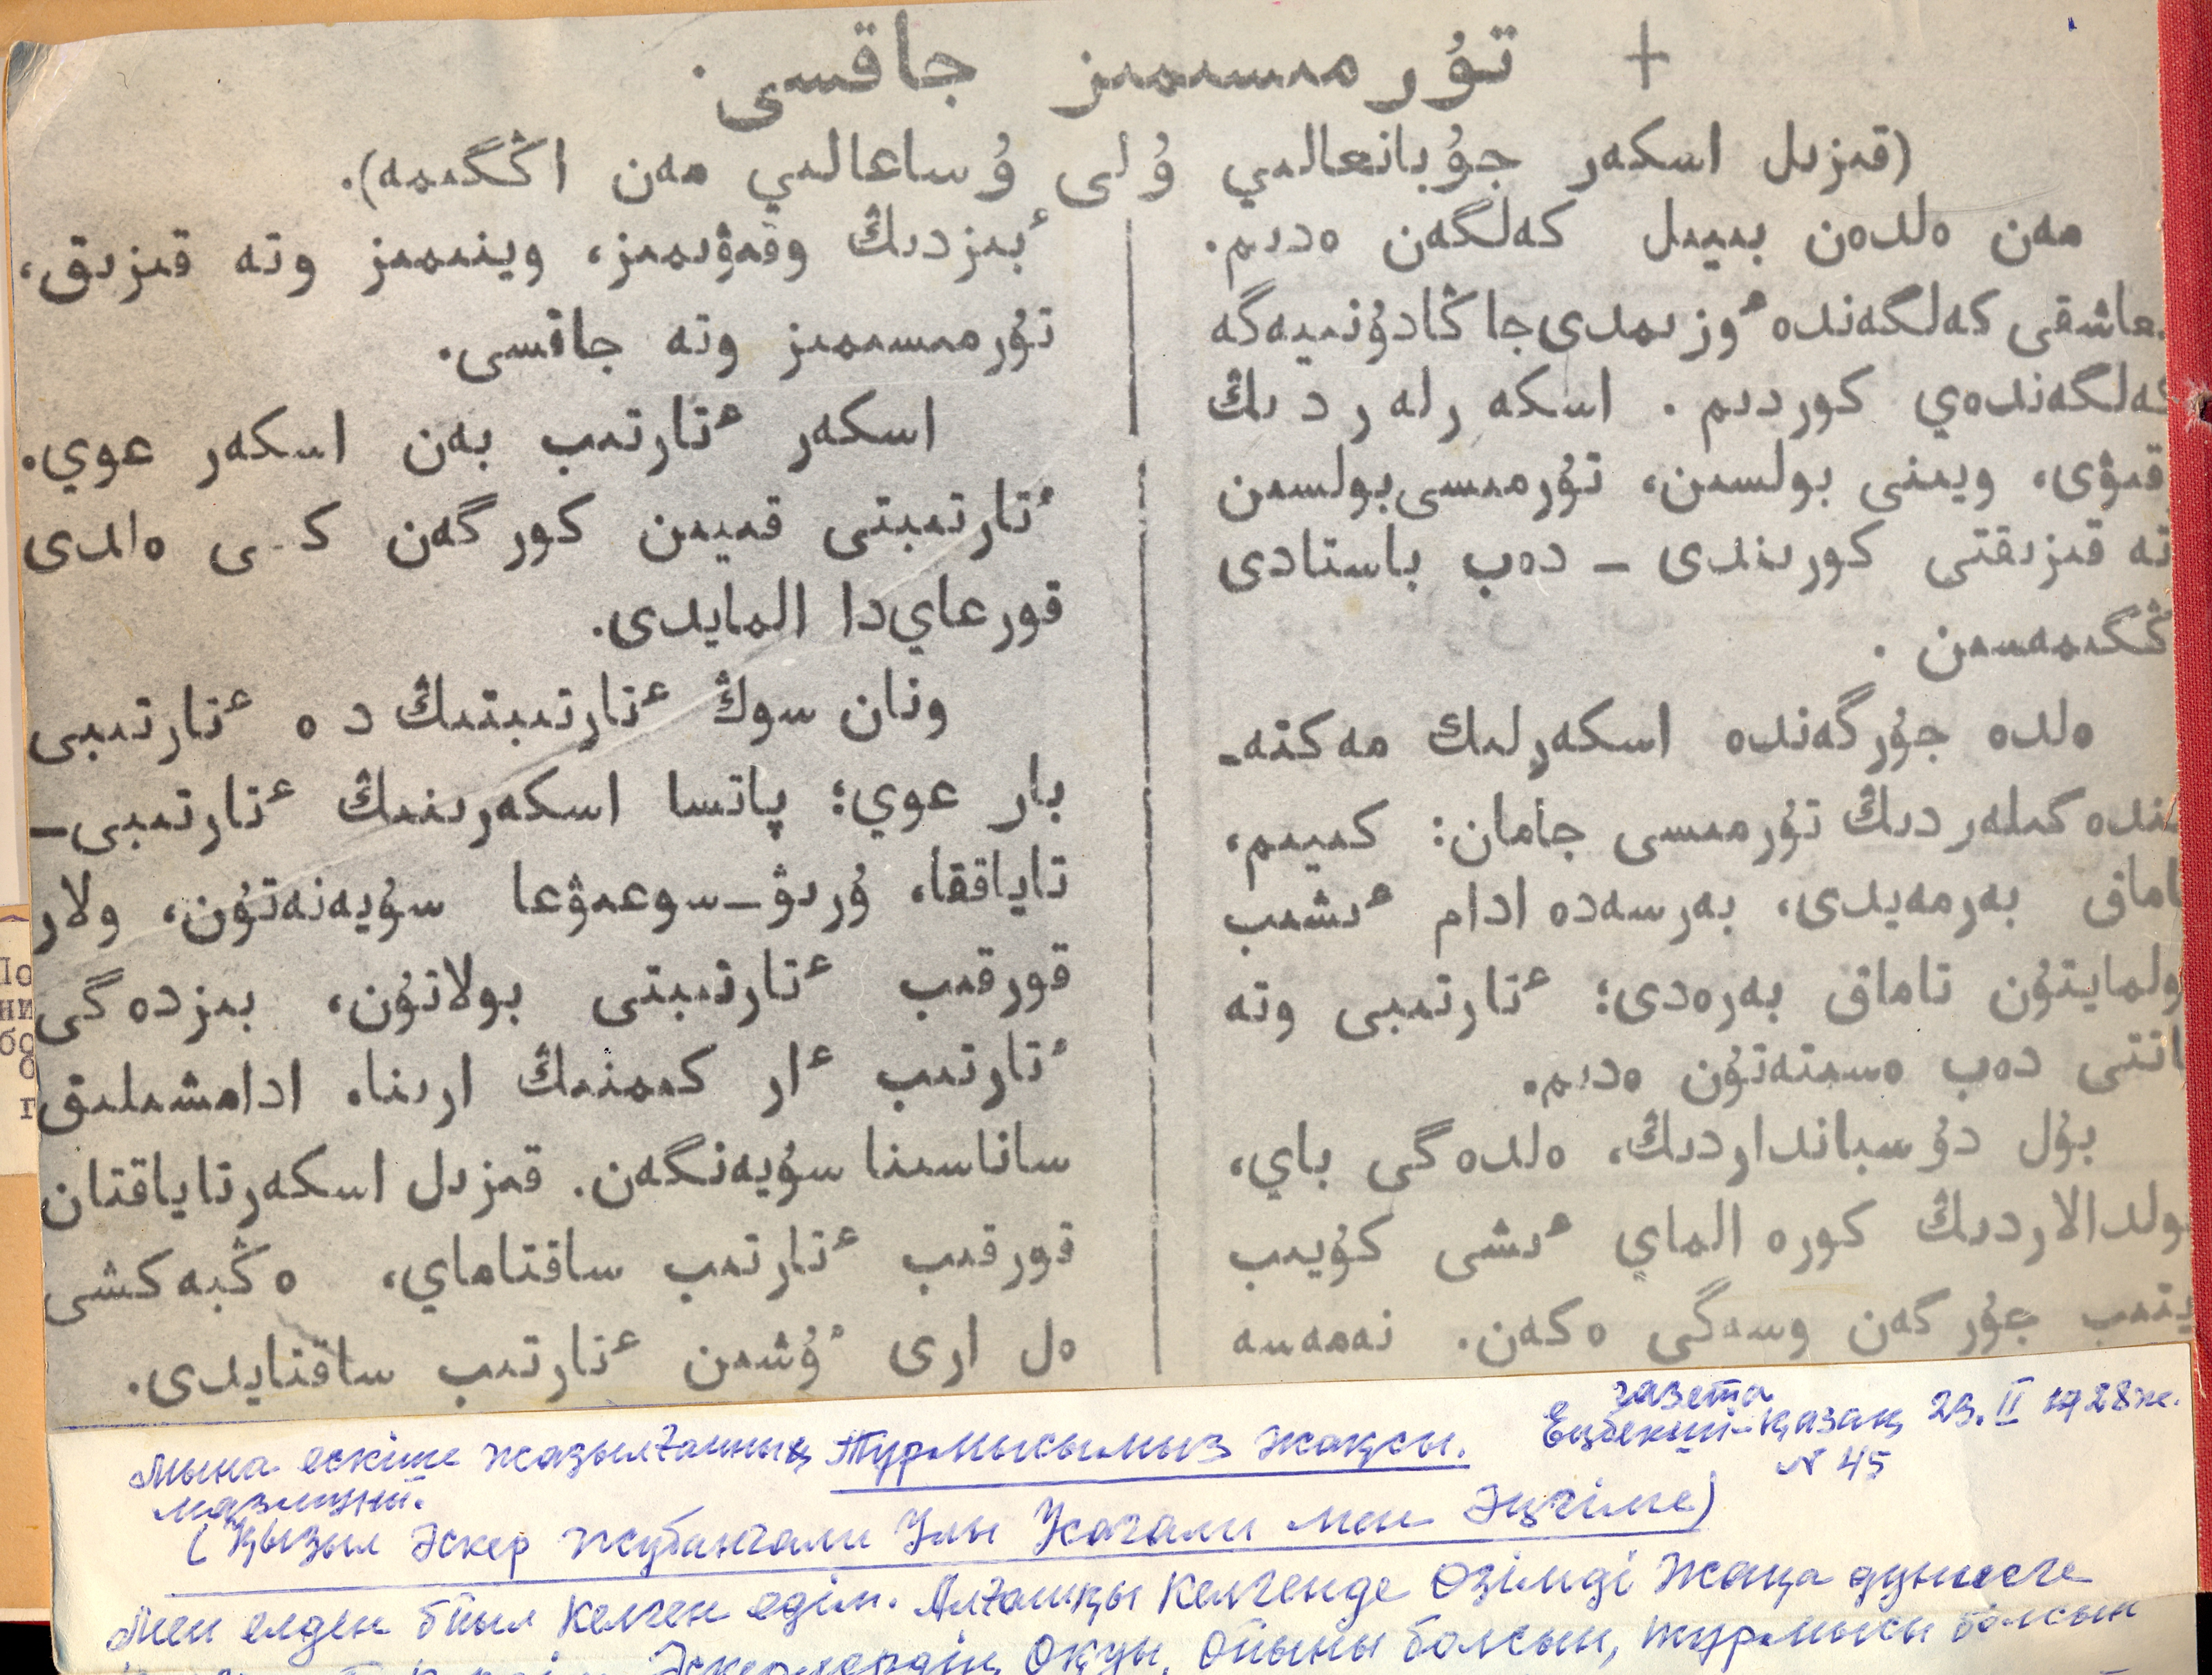 + تۇرمىسىمىز جاقسى.
(قىزىل اسكەر جۇبانعالىي ۇلى ۇساعالىي مەن اڭگىمە).
مەن ەلدەن بىيىل كەلگەن ەدىم.
عاشقى كەلگەندە ٴوزىمدى جاڭا دۇنىيەگە
كەلگەندەي كوردىم. اسكەرلەردىڭ
قىۋى، ويىنى بولسىن، تۇرمىسى بولسىن
تە قىزىقتى كورىندى — دەپ باستادى
ڭگىمەسىن.
ەلدە جۇرگەندە اسكەرلىك مەكتە-
ىندەگىلەردىڭ تۇرمىسى جامان: كىيىم،
اماق بەرمەيدى، بەرسەدە ادام ٴىشىپ
ولمايتۇن تاماق بەرەدى؛ ٴتارتىبى وتە
اتتى دەپ ەسىتەتۇن ەدىم.
بۇل دۇسپانداردىڭ، ەلدەگى باي،
ولدالاردىڭ كورە الماي ٴىشى كۇيىپ
يتىپ جۇرگەن وسەگى ەكەن. نەمەسە
ٴبىزدىڭ وقىۋىمىز، وينىمىز وتە قىزىق،
تۇرمىسىمىز وتە جاقسى.
اسكەر ٴتارتىپ بەن اسكەر عوي.
ٴتارتىبتى قىيىن كورگەن كىسى ەلدى
قورعاي دا المايدى.
ونان سوڭ ٴتارتىبتىڭ دە ٴتارتىبى
بار عوي؛ پاتسا اسكەرىنىڭ ٴتارتىبى—
تاياققا، ۇرىۋ-سوعىۋعا سۇيەنەتۇن، ولار
قورقىپ ٴتارتىبتى بولاتۇن، بىزدەگى
ٴتارتىپ ٴار كىمنىڭ ارىنا، ادامشىلىق
ساناسىنا سۇيەنگەن. قىزىل اسكەر تاياقتان
قورقىپ ٴتارتىپ ساقتاماي، ەڭبەكشى
ەل ارى ٴۇشىن ٴتارتىپ ساقتايدى.
газета
Мына ескіше жазылғанның Тұрмысымыз жақсы. Еңбекші-қазақ 23.II 1928ж.
мазмұны. N 45
(Қызыл Әскер Жұбанғали Ұлы Ұсағали мен Әңгіме)
Мен елден биыл келген едім. Алғашқы келгенде Өзімді Жаңа дүниеге
Әскерлердің оқуы, ойыны болсын, тұрмысы болсын